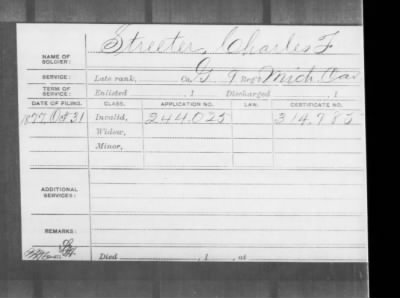 NAME OF SOLDIER: Streeter, Charles F
SERVICE: Late rank, Co. G, 9 Reg't Mich. Cav
TERM OF SERVICE: Enlisted , 1 Discharged , 1
DATE OF FILING. CLASS. APPLICATION NO. LAW. CERTIFICATE NO.
1877, Oct 31 Invalid, 244,025 314,785
Widow,
Minor,
ADDITIONAL SERVICES:
REMARKS:
Died , 1 , at